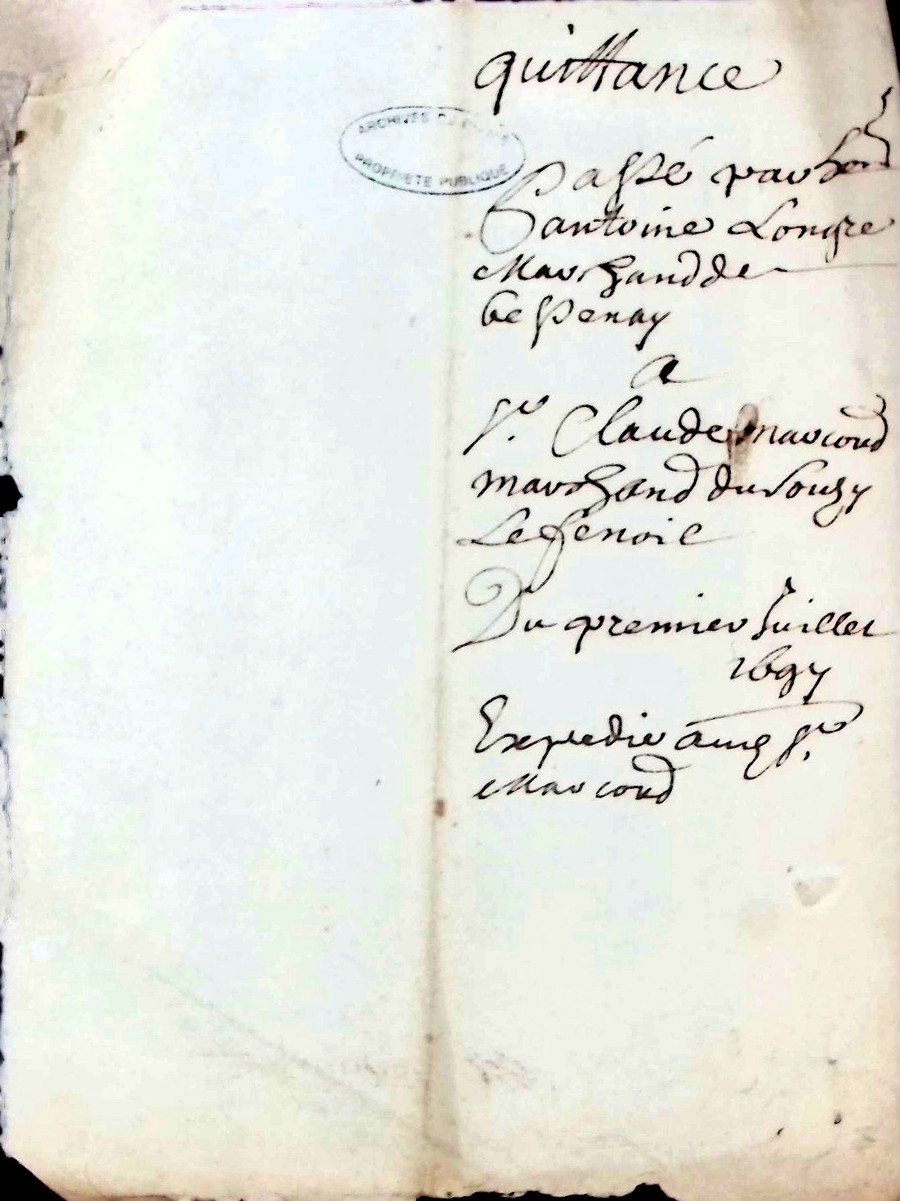 quittance
ARCHIVES DU RHÔNE
PROPRIÉTÉ PUBLIQUE
Passé par hon
antoine Longre
Marchand de
bessenay
A
Sr. Claude marcoud
marchand du souzy
Le fenoil
Du premier Juillet
1697
Expedie aud Sr.
Marcoud